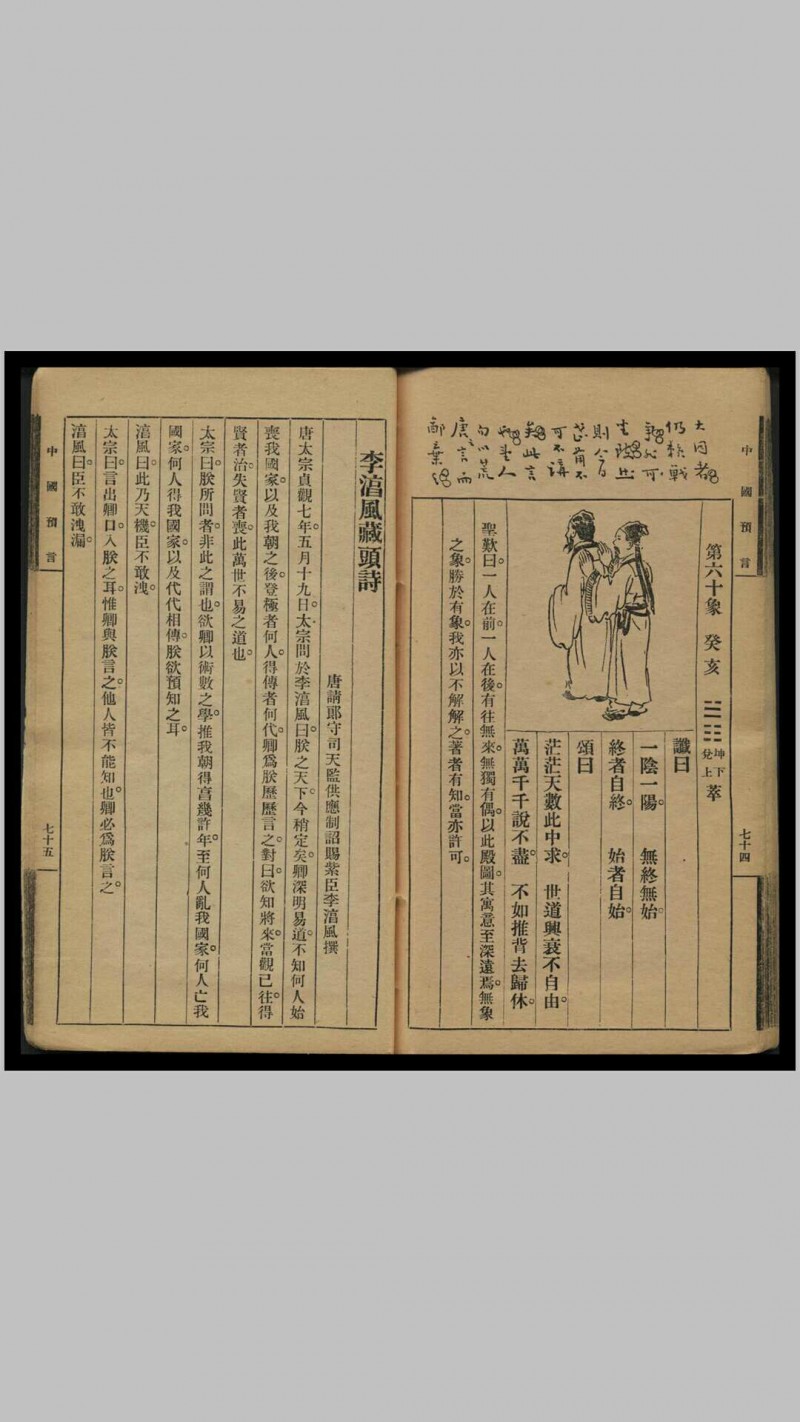 中國預言
七十四
第六十象 癸亥 ☱☷ 坤下兌上 萃
讖曰
一陰一陽。 無終無始。
終者自終。 始者自始。
頌曰
茫茫天數此中求。 世道興衰不自由。
萬萬千千說不盡。 不如推背去歸休。
聖歎曰。一人在前。一人在後。有往無來。無獨有偶。以此殿圖。其寓意至深遠焉。無象
之象。勝於有象。我亦以不解解之。著者有知。當亦許可。
李淳風藏頭詩
唐請耶守司天監供應制詔賜紫臣李淳風撰
唐太宗貞觀七年五月十九日。太宗問於李淳風曰。朕之天下。今稍定矣。卿深明易道。不知何人始
喪我國家。以及我朝之後。登極者何人。得傳者何代。卿爲朕歷歷言之。對曰。欲知將來。當觀已往。得
賢者治。失賢者喪。此萬世不易之道也。
太宗曰。朕所問者。非此之謂也。欲卿以術數之學。推我朝得享幾許年。至何人亂我國家。何人亡我
國家。何人得我國家。以及代代相傳。朕欲預知之耳。
淳風曰。此乃天機。臣不敢洩。
太宗曰。言出卿口。入朕之耳。惟卿與朕言之。他人皆不能知也。卿必爲朕言之。
淳風曰。臣不敢洩漏。
中國預言
七十五